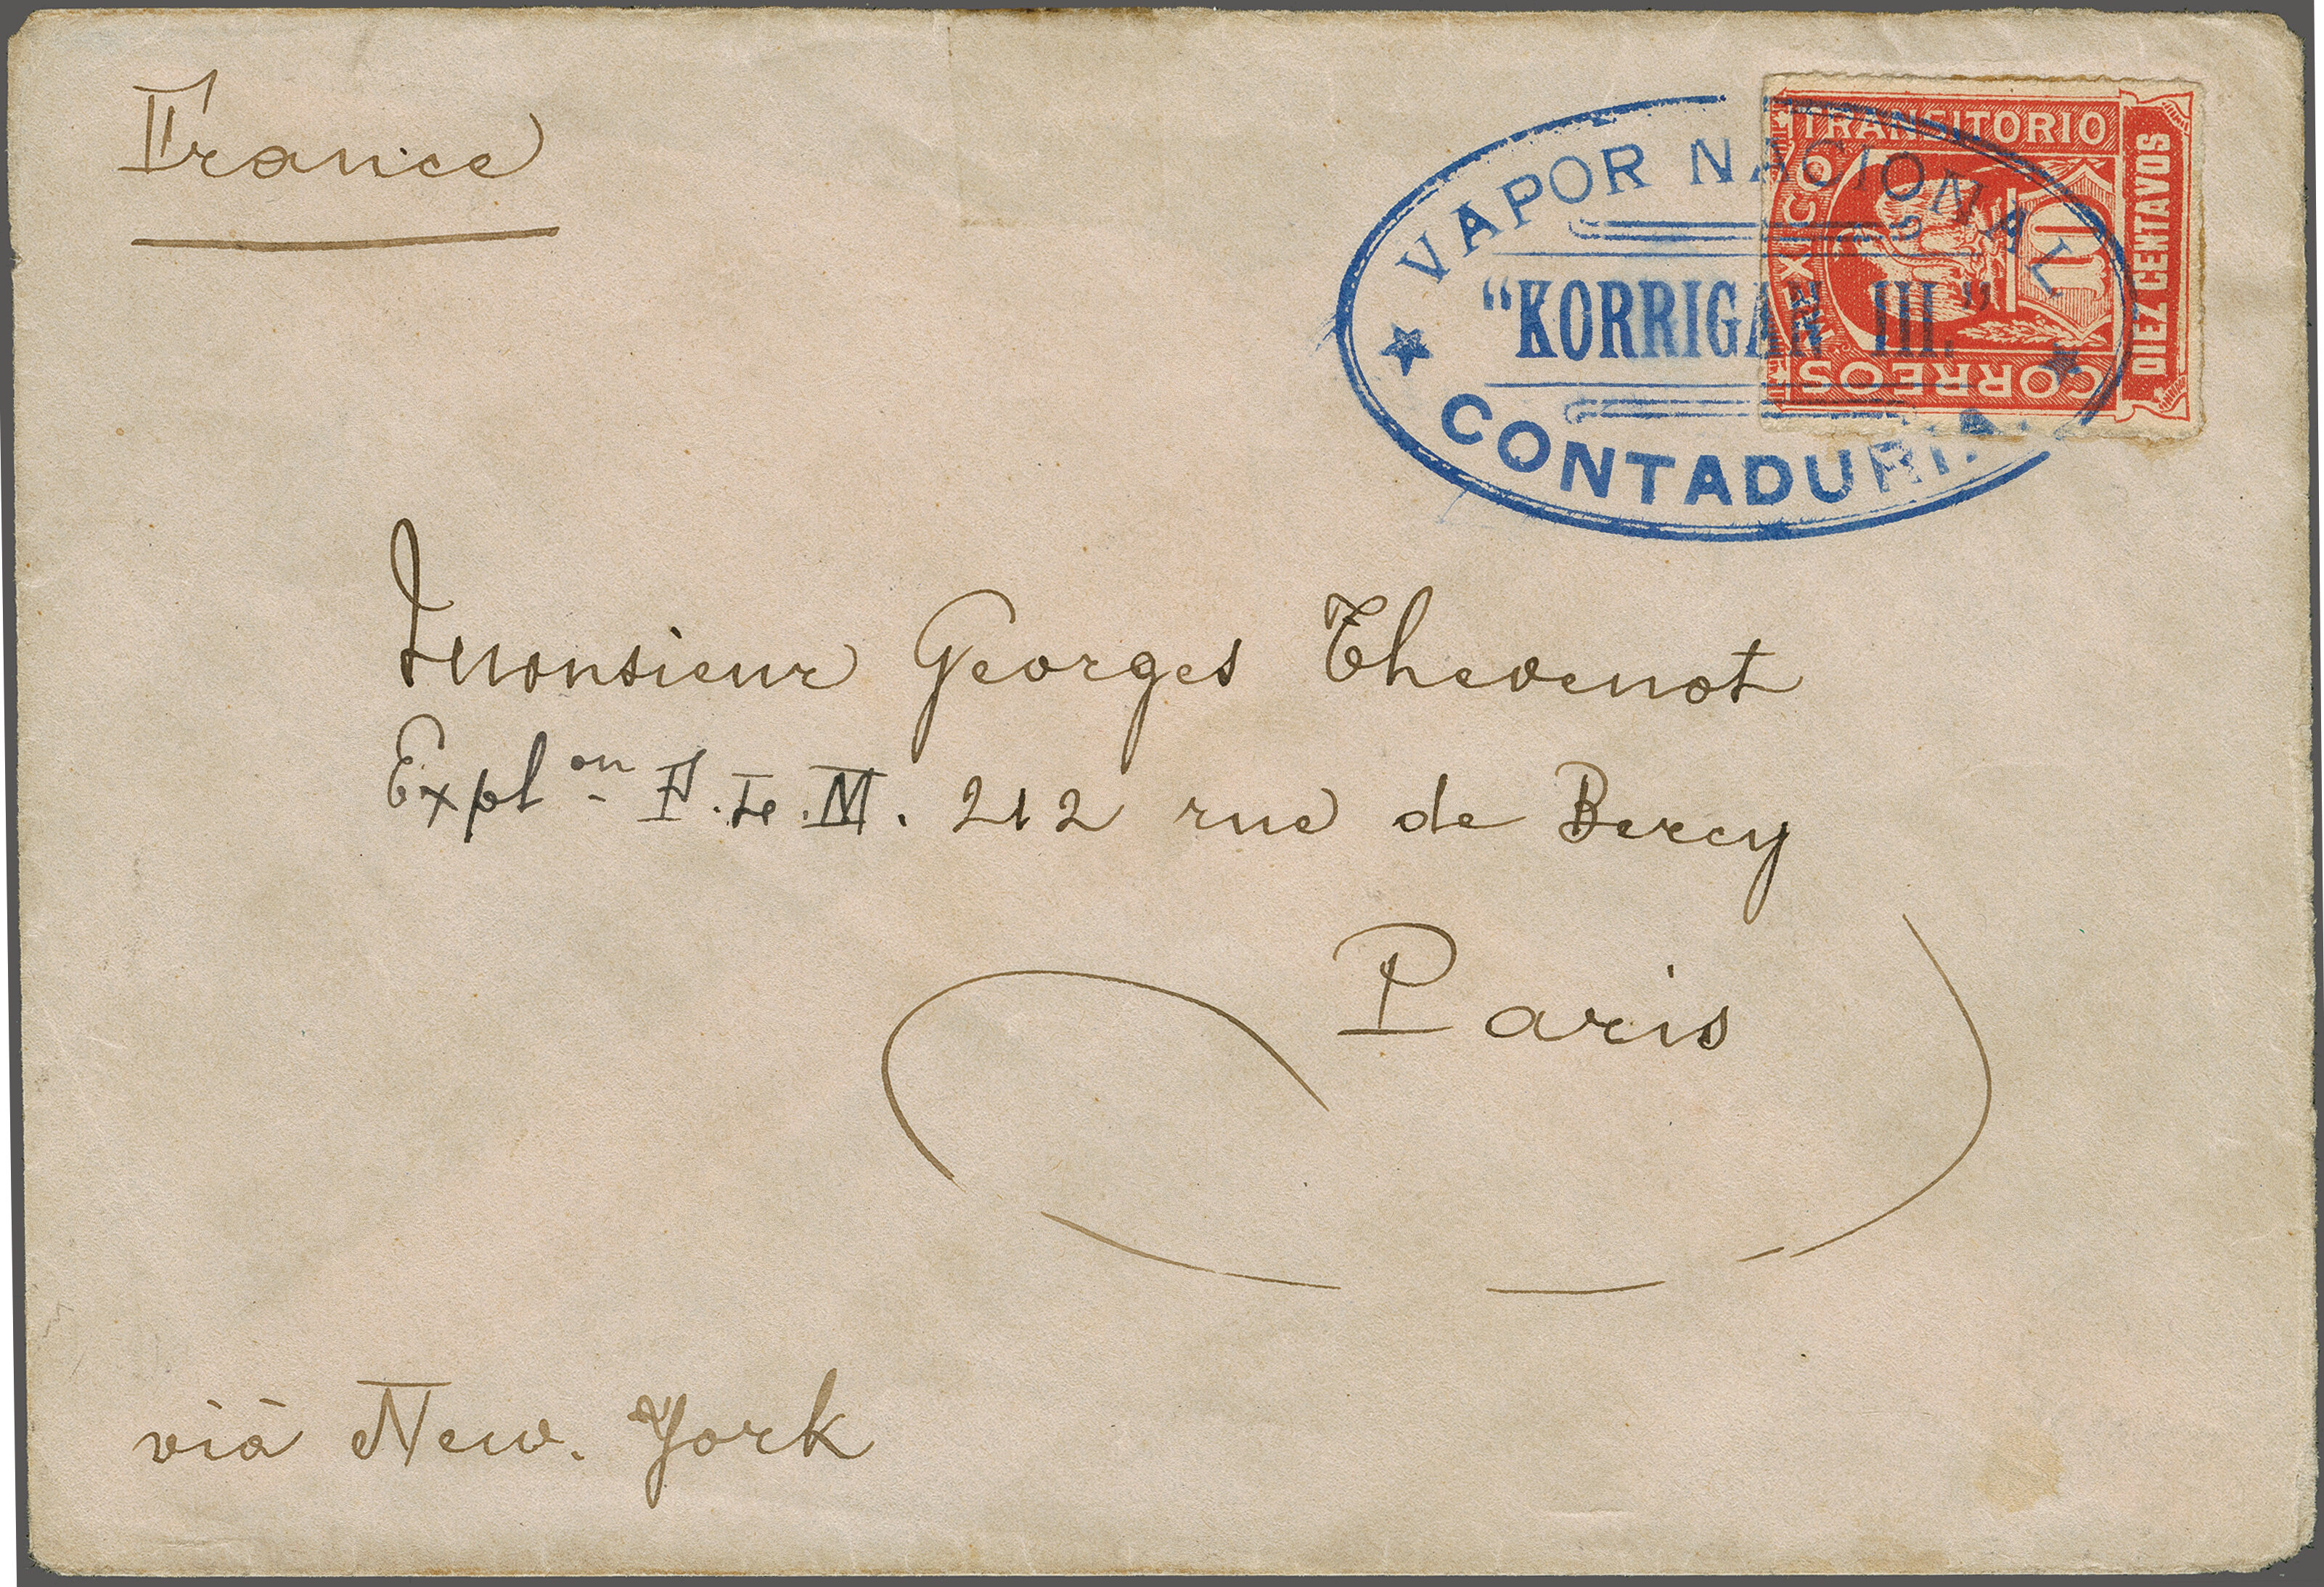 France
VAPOR NACIONAL
"KORRIGAN III."
CONTADURIA
TRANSITORIO
MEXICO
CORREOS
10
DIEZ CENTAVOS
Monsieur Georges Thevenot
Expl on - F. L. M. 212 rue de Bercy
Paris
vià New. York